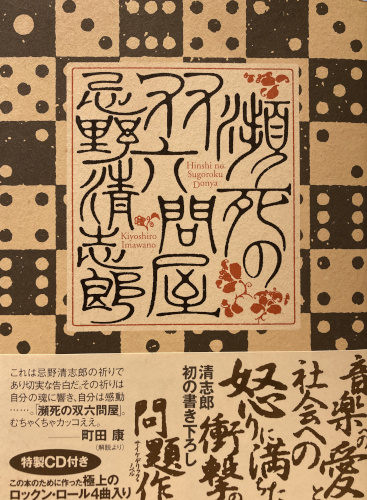 瀕死の
双六問屋
忌野清志郎
Hinshi no
Sugoroku
Donya
Kiyoshiro
Imawano
音楽への愛と
社会への
怒りに満ちた
衝撃の
問題作
サイケデリック
ノベル
清志郎
初の書き下ろし
これは忌野清志郎の祈りで
あり切実な告白だ。その祈りは
自分の魂に響き、自分は感動
……。『瀕死の双六問屋』。
むちゃくちゃカッコええ。
——町田 康
(解説より)
特製CD付き
この本のために作った極上の
ロックン・ロール4曲入り